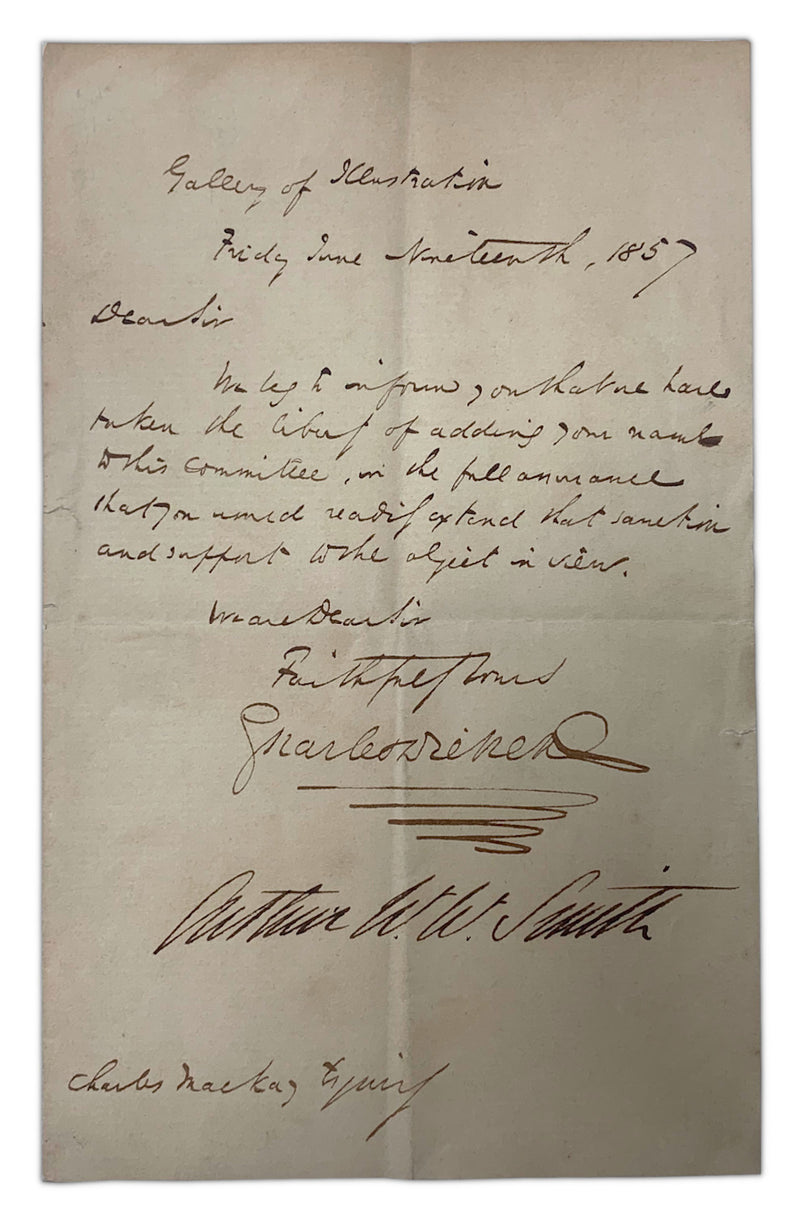 Gallery of Illustration
Friday June Nineteenth, 1857
Dear Sir
We beg to inform you that we have
taken the liberty of adding your name
to this Committee, in the full assurance
that you would readily extend that sanction
and support to the object in view.
We are Dear Sir
Faithfully Yours
Charles Dickens
Arthur W. W. Smith
Charles Mackay Esquire